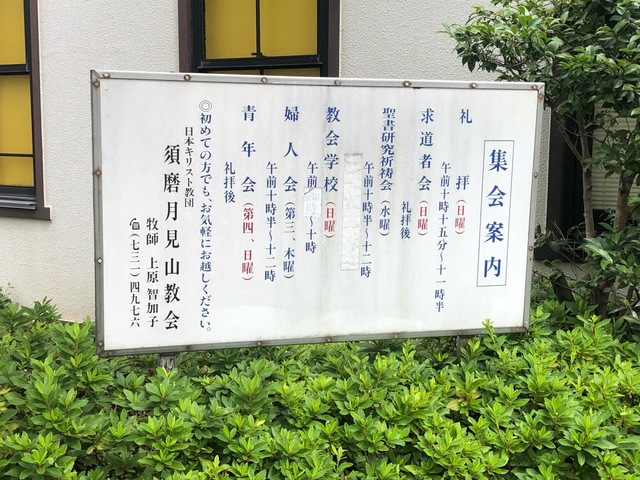 集会案内
礼拝(日曜)
午前十時十五分〜十一時半
求道者会(日曜)
礼拝後
聖書研究祈祷会(水曜)
午前十時半〜十二時
教会学校(日曜)
午前 〜十時
婦人会(第三、木曜)
午前十時半〜十二時
青年会(第四、日曜)
礼拝後
◎初めての方でも、お気軽にお越しください。
日本キリスト教団
須磨月見山教会
牧師 上原智加子
☎(七三一)四九七六